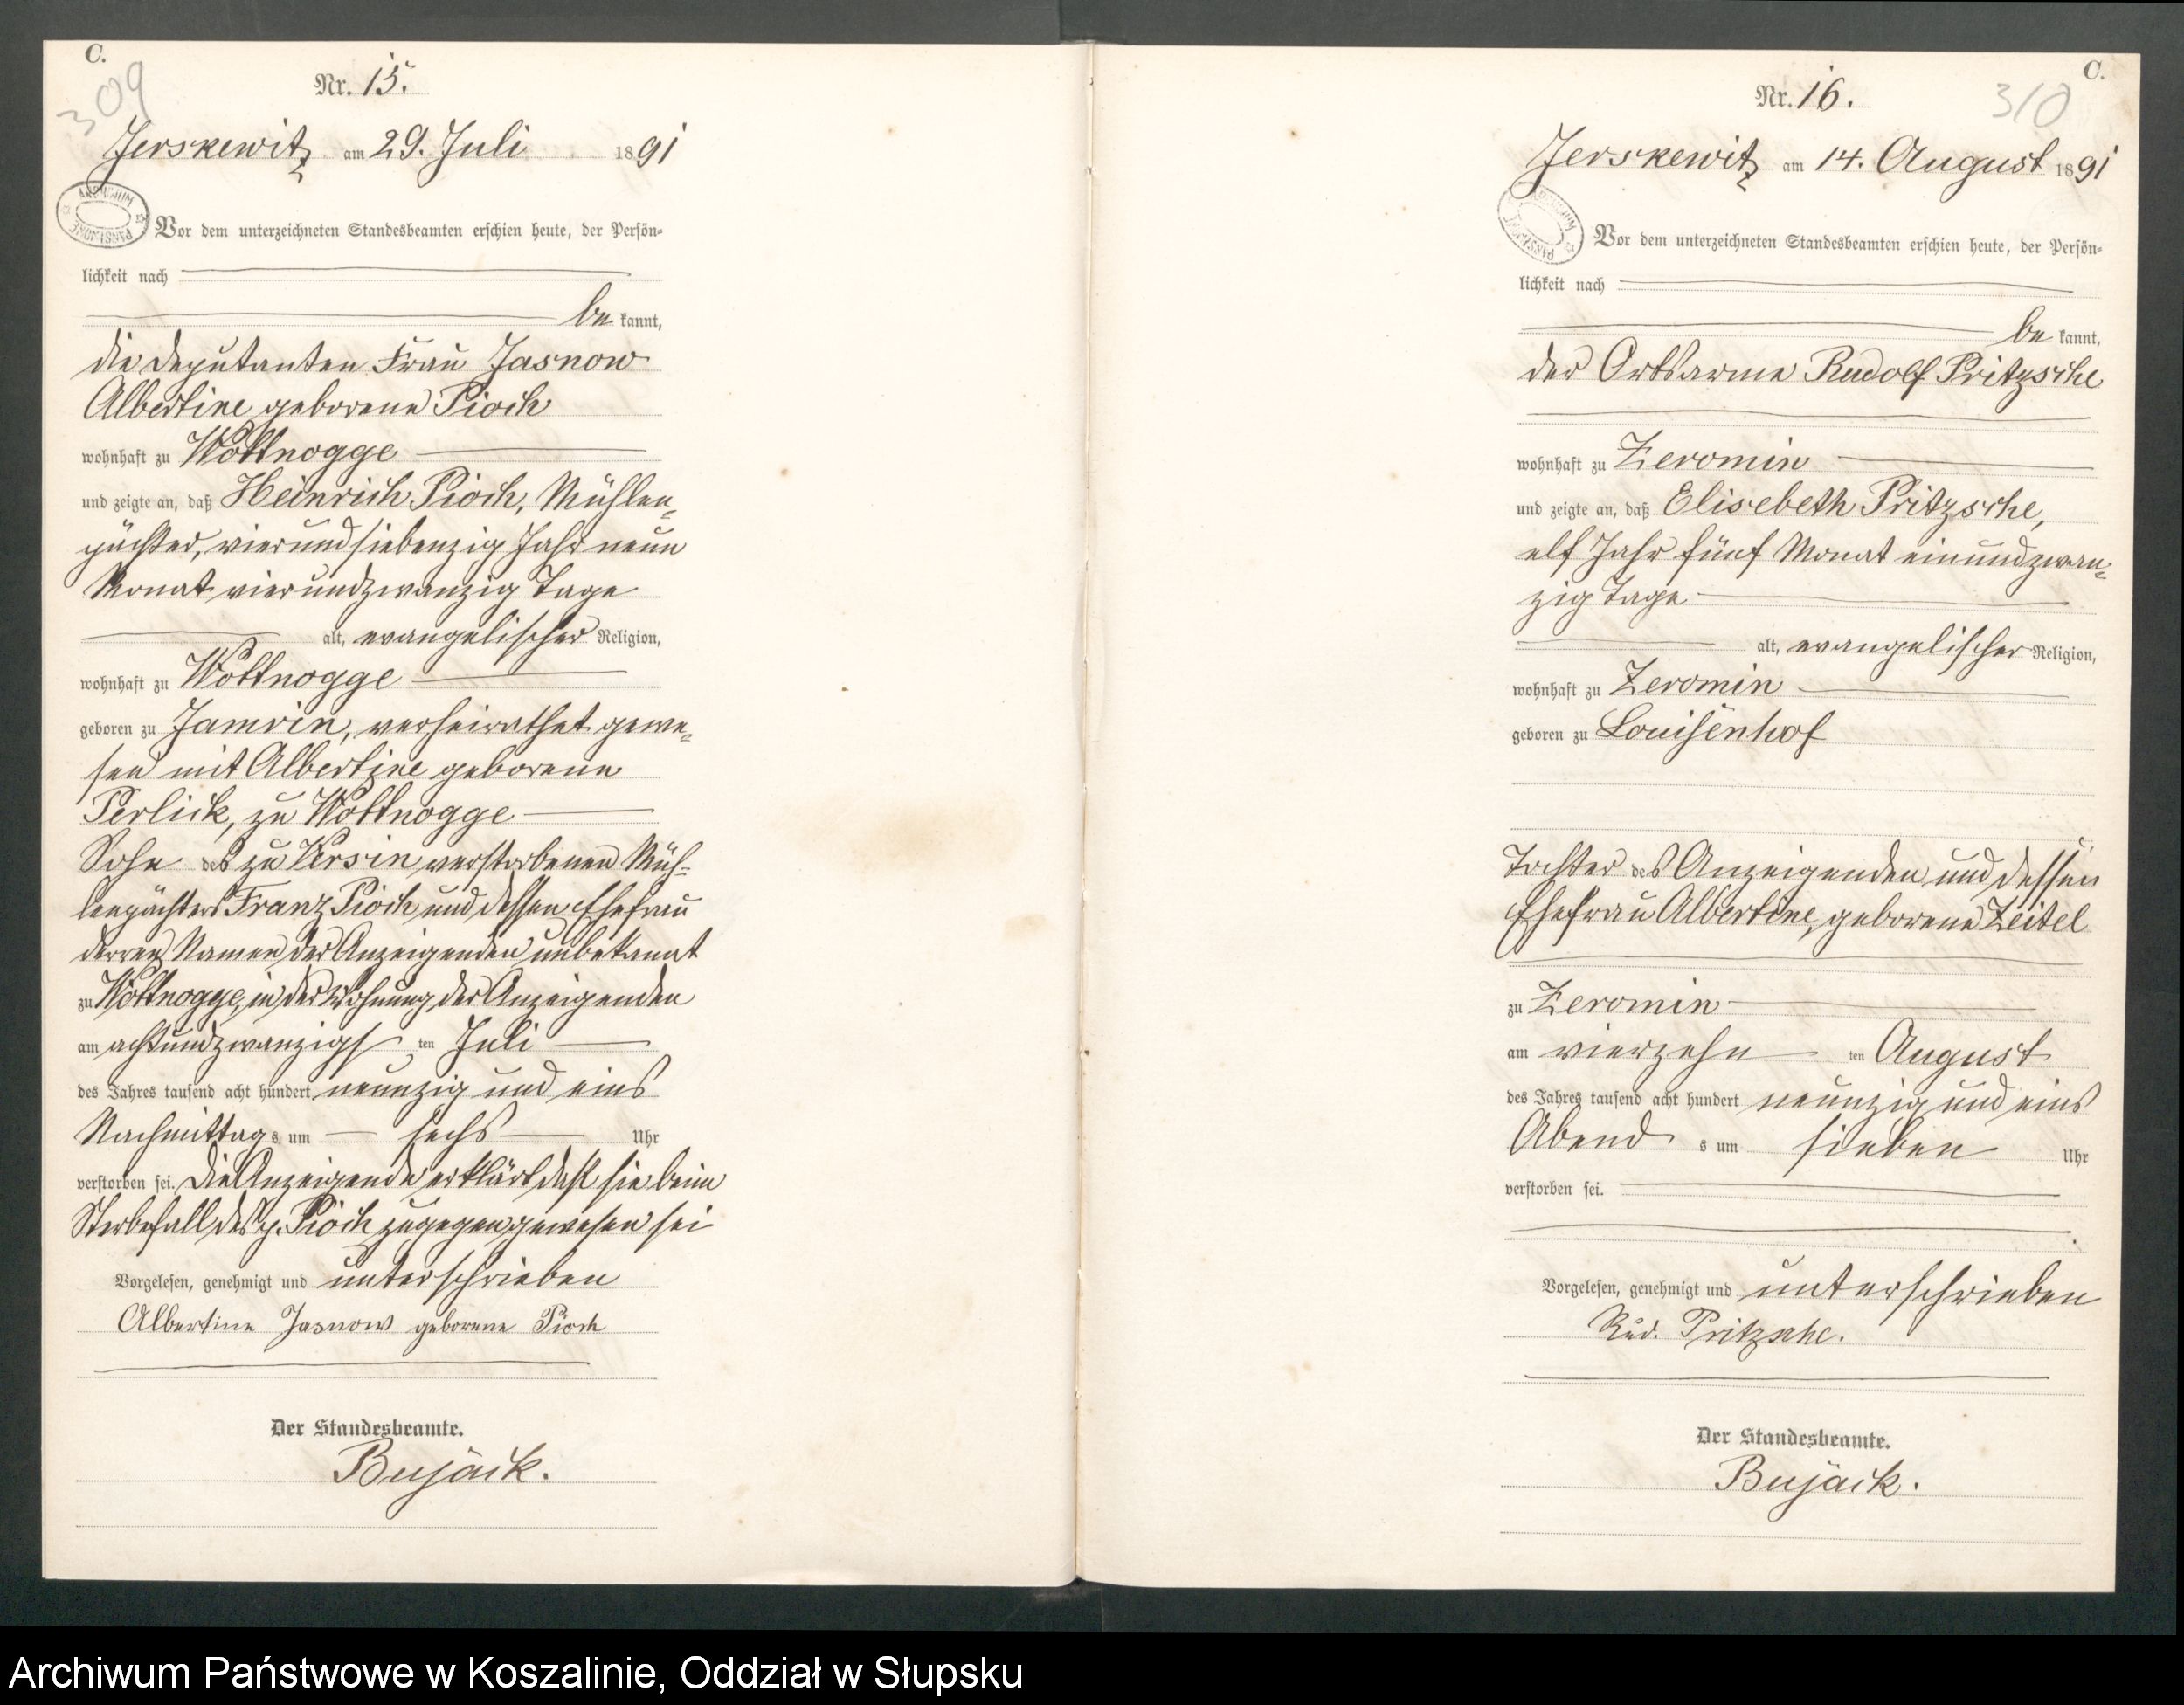 C.
309
Nr. 15.
Jerskewitz am 29. Juli 1891
Vor dem unterzeichneten Standesbeamten erschien heute, der Persön-
lichkeit nach
be kannt,
die Deputanten Frau Jasnow
Albertine geborene Pioch
wohnhaft zu Wottnogge
und zeigte an, daß Heinrich Pioch, Mühlen-
pächter, vierundsiebenzig Jahr neun
Monat vierundzwanzig Tage
alt, evangelischer Religion,
wohnhaft zu Wottnogge
geboren zu Jamrin, verheirathet gewe-
sen mit Albertine geborene
Perlick, zu Wottnogge
Sohn des zu Versin verstorbenen Müh-
lenpächters Franz Pioch und dessen Ehefrau
derren Namen der Anzeigenden unbekannt
zu Wottnogge, in der Wohnung der Anzeigenden
am achtundzwanzigs ten Juli
des Jahres tausend acht hundert neunzig und eins
Nachmittag s um sechs Uhr
verstorben sei. Die Anzeigende erklärt daß sie beim
Sterbefall des p. Pioch zugegen gewesen sei
Vorgelesen, genehmigt und unterschrieben
Albertine Jasnow geborene Pioch
Der Standesbeamte.
Bujack.
C.
310
Nr. 16.
Jerskewitz am 14. August 1891
Vor dem unterzeichneten Standesbeamten erschien heute, der Persön-
lichkeit nach
be kannt,
der Ortsarme Rudolf Pritzsche
wohnhaft zu Zeromin
und zeigte an, daß Elisebeth Pritzsche,
elf Jahr fünf Monat einundzwan-
zig Tage
alt, evangelischer Religion,
wohnhaft zu Zeromin
geboren zu Louisenhof
Tochter des Anzeigenden und dessen
Ehefrau Albertine, geborene Zeitel
zu Zeromin
am vierzehn ten August
des Jahres tausend acht hundert neunzig und eins
Abend s um sieben Uhr
verstorben sei.
Vorgelesen, genehmigt und unterschrieben
Rud. Pritzsche.
Der Standesbeamte.
Bujack.
Archiwum Państwowe w Koszalinie, Oddział w Słupsku